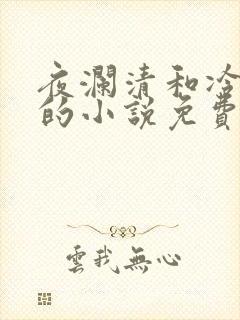 夜瀾清和冷
的小說免費
雲我無心